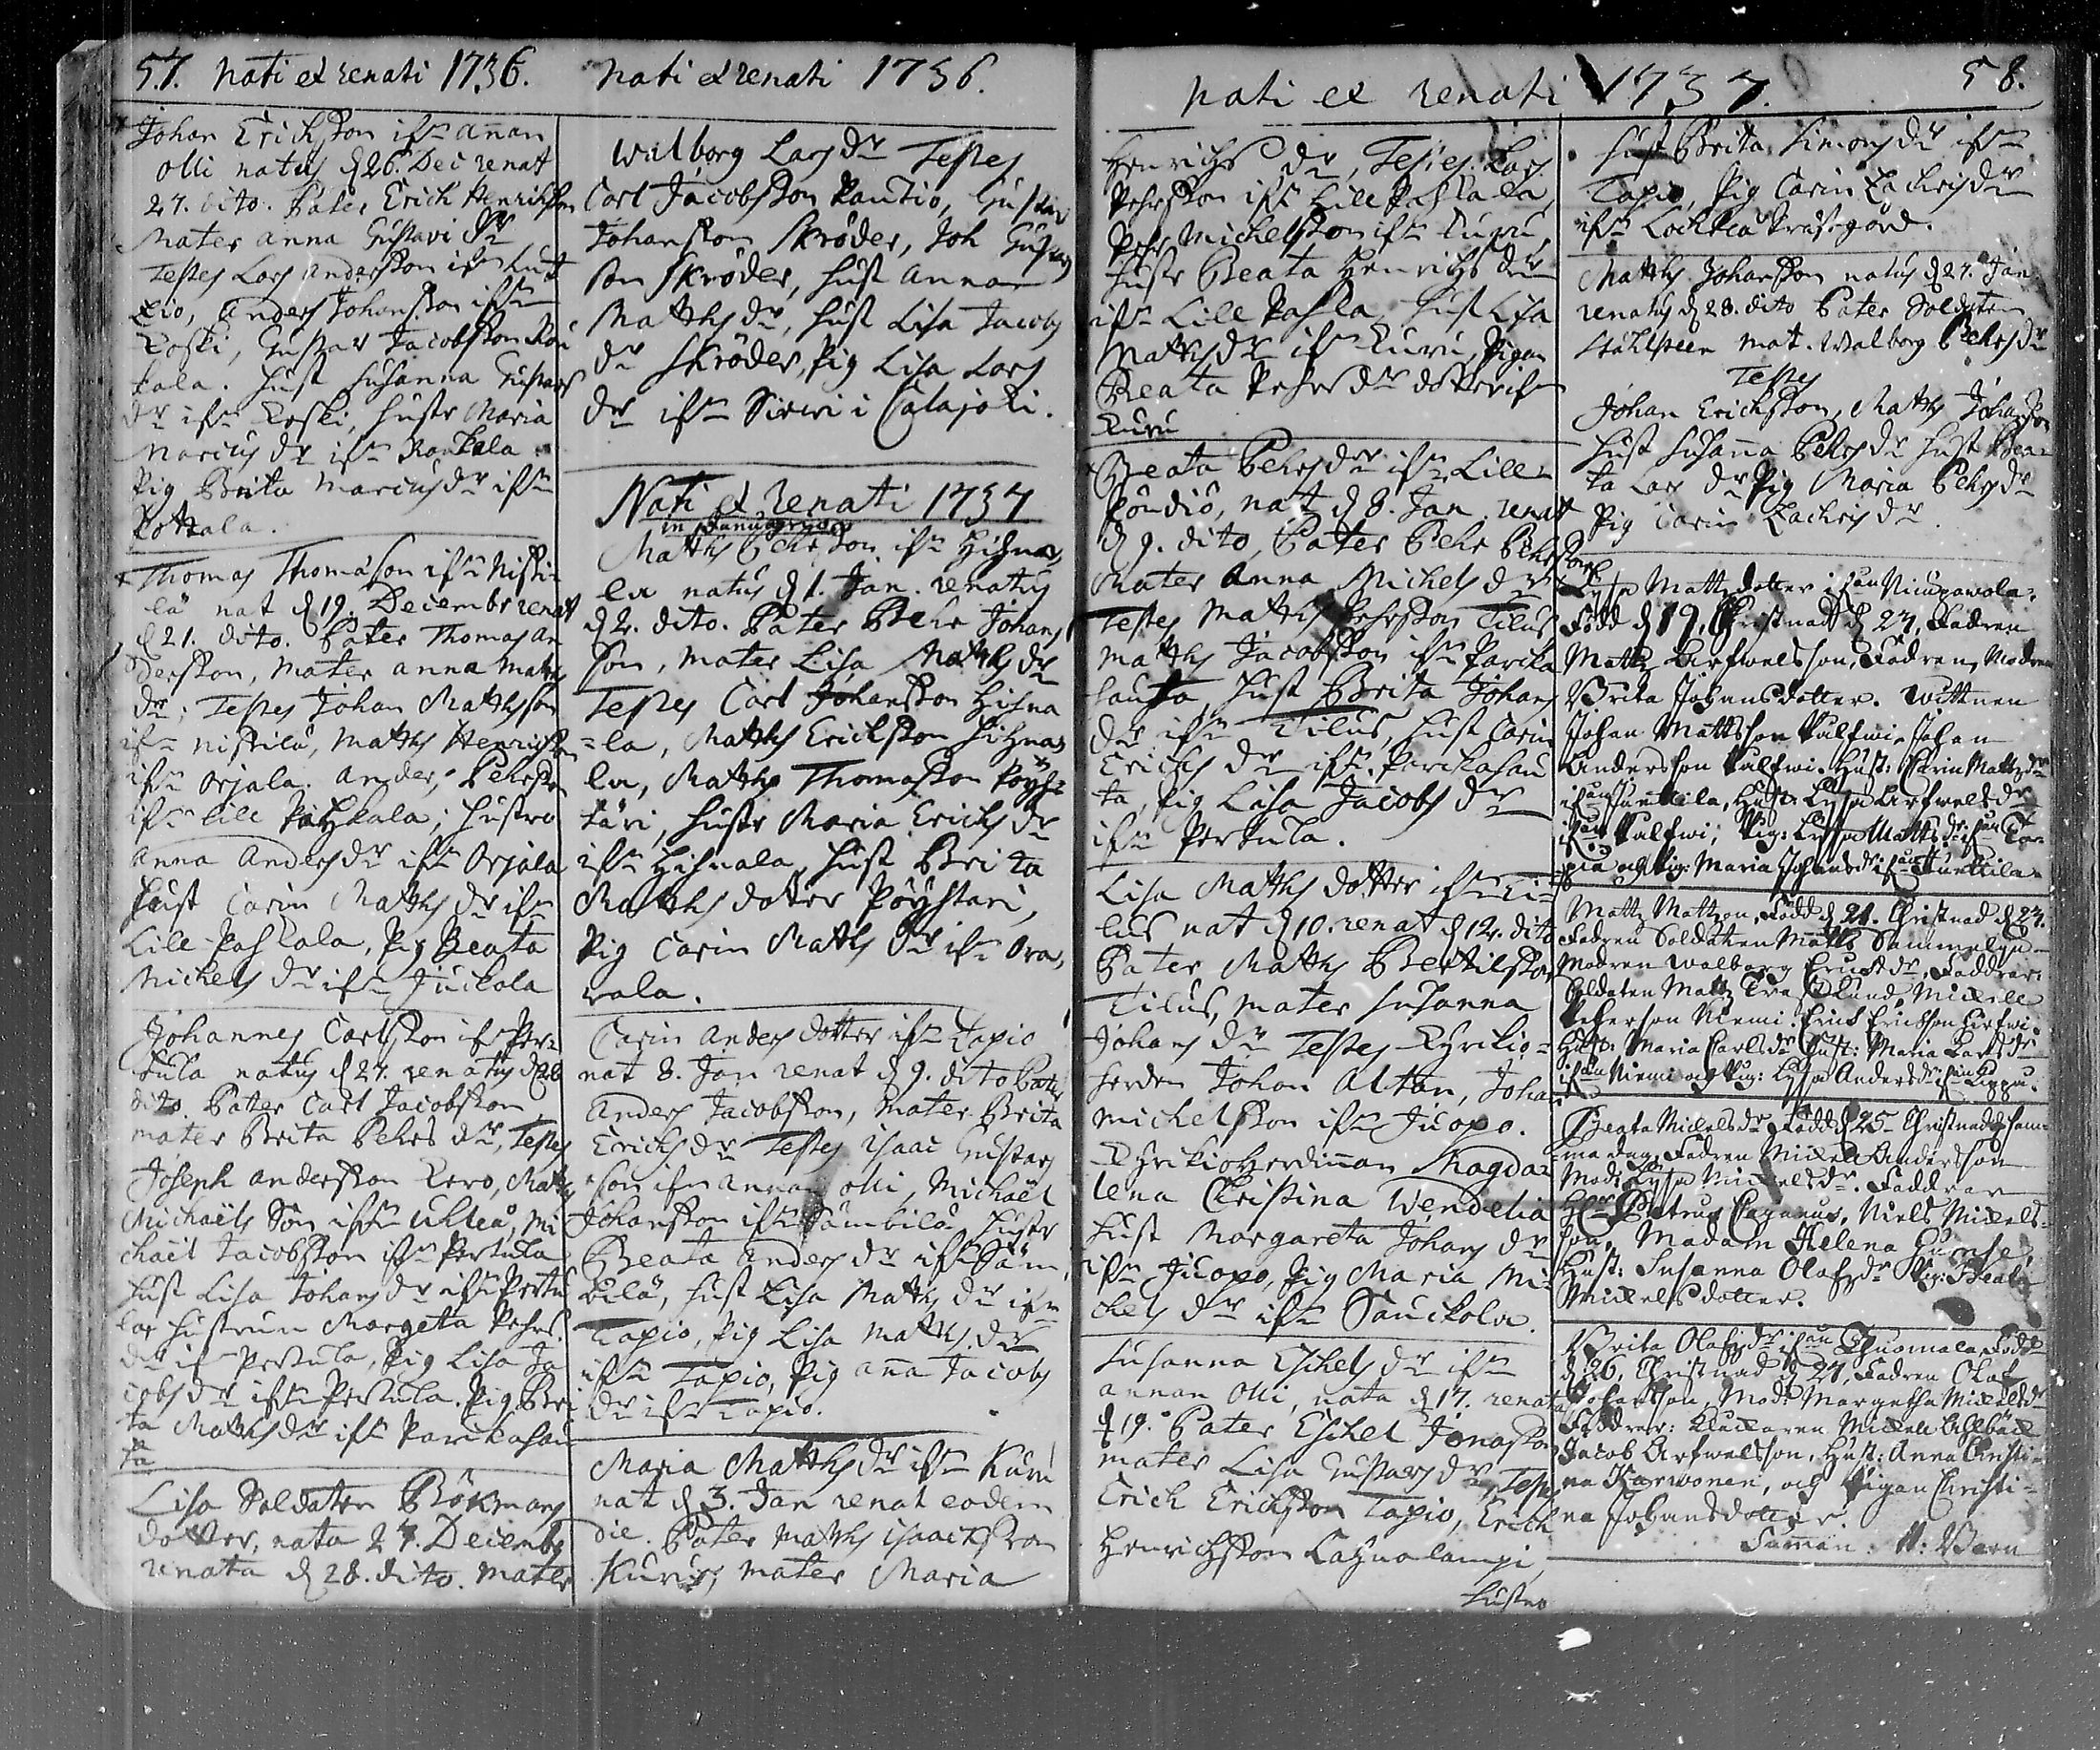 57. Nati et renati 1736.
Johan Erichsson ifrn annan
olli natus d 26. Dec renat
27. dito. Pater Erich Henrichsson
Mater Anna Gustavi dr
Testes Lars Andersson ifrn
kio, Anders Johansson ifrn
Koski, Gustav Jacobsson Rau
kala. Hust Susanna Gustavs
dr ifrn Koski, Hustr Maria
Marcus dr ifrn Raukala
Pig Brita Marcusdr ifrn
Kottala.
Thomas Thomasson ifrn Niski-
lä nat d 19. Decembr renat
d 21. dito. Pater Thomas An
dersson, Mater Anna Matths
dr; Testes Johan Matthsson
ifrn Niskilä, Matths Henrichsson
ifrn Orjala. Anders Pehrsson
ifrn Lille Pahkala; Hustru
Anna Andersdr ifrn Orjala
Hust Carin Matthsdr ifrn
Lille Pahkala, Pig Beata
Michels dr ifrn Juckola
Johannes Carlsson ifrn Per-
tula natus d 27. renatus d 28
dito. Pater Carl Jacobsson
mater Brita Pehrs dr, Testes
Joseph Andersson Kero, Matts
Michaels Son ifrn Uhlea, Mi
chaël Jacobsson ifrn Pertula
Hust Lisa Johansdr ifrn Pertu
la, Hustrun Margeta Pehrs
dr ifrn Pertula, Pig Lisa Ja
cobsdr ifrn Pertula. Pig Bri
ta Matthsdr ifrn Parikahau
ta
Lisa Soldaten Bökmans
dotter, nata 27. Decembr
renata d 28. dito. Mater
Nati et renati 1736.
Walborg Lars dr Testes
Carl Jacobsson Rautio, Gustav
Johansson Skröder, Joh Gustavs
son Skröder, Hust Anna
Matthsdr, Hust Lisa Jacobs
dr Skröder, Pig Lisa Lars
dr ifrn Siwri i Calajoki.
Nati et renati 1737
in Januario
Matths Pehrsson ifrn Hihna
la natus d 1. Jan. renatus
d 2. dito. Pater Pehr Johans
son, Mater Lisa Matthsdr
Testes Carl Johansson Hihna
=la, Matths Erichsson Hihna
la, Matths Thomasson Pöyh=
täri, Hustr Maria Erichs dr
ifrn Hihnala, Hust Brita
Matths dotter Pöyhtari,
Pig Carin Matths dr ifrn Ora,
wala.
Carin Anders dotter ifrn Tapio
nat 8. Jan renat d 9. dito Pater
Anders Jacobsson, Mater Brita
Erichsdr Testes Isaac Gustavs
son ifrn annan olli, Michaël
Johansson ifrn Sämbilä Hustr
Beata Anders dr ifrn Säm
bilä, Hust Lisa Matths dr ifrn
Tapio, Pig Lisa Matths dr
ifrn Tapio, Pig Anna Jacobs
dr ifrn Tapio.
Maria Matthsdr ifrn Kuru
nat d 3. Jan renat eodem
die. Pater Matths Isaacksson
Kuru, Mater Maria
Nati et renati 1737. 58.
Henrichs dr, Testes Lars
Pehrsson ifrn Lille Pahkala,
Pehr Michelsson ifrn Kuru,
Hustr Beata Henrichs dr
ifrn Lille Pahla, Hust Lisa
Matthsdr ifrn Kuru, Pigan
Beata Pehrs dr dotter ifrn
Kuru
Beata Pehrsdr ifrn Lille
Pöndiö, nat d 8. Jan. renat
d 9. dito, Pater Pehr Pehrsson
Mater Anna Michels dr
Testes Matths Pehrsson Tilus
Matths Jacobsson ifrn Parika
hauta, Hust Brita Johans
dr ifrn Tilus, Hust Carin
Erichs dr ifrn Parikahau
ta, Pig Lisa Jacobs dr
ifrn Pertula.
Lisa Matths dotter ifrn Ti=
lus nat d 10. renat d 12. dito
Pater Matths Bertilsson
Tilus, Mater Susanna
Johans dr Testes Kyrkio=
herden Johan Altan, Johan
Michelsson ifrn Jucopo.
Kyrkioherdinnan Magda
lena Christina Wendelia
Hust Margareta Johans dr
ifrn Jucopo, Pig Maria Mi=
chels dr ifrn Sauckola.
Susanna Eschels dr ifrn
annan olli, nata d 17. renata
d 19. Pater Eschel Jonasson
mater Lisa Gustavs dr, Testes
Erich Erichsson Tapio, Erich
Henrichsson Cahnalampi
Hustru
Hust Brita Simons dr ifrn
Tapio, Pig Carin Zachrisdr
ifrn Lochteå Prästegård.
Matths Johansson natus d 27. Jan
renatus d 28. dito Pater Soldaten
Ståhlsteen mat. Walborg Pehrsdr
Testes
Johan Erichsson, Matths Johansson
Hust Susanna Pehrsdr Hust Bea=
ta Lars dr Pig Maria Pehrsdr
Pig Carin Zachris dr.
Lysa Mattsdotter ifrån Niwpawola.
Född d 19. Christnadt d 27, Fadren
Matts Arfwelsson, Modren
Brita Johansdotter. Wittnen
Johan Mattsson Palfwi, Johan
Andersson Palfwi, Hust: Karin Mattsdr
ifrån Junttila, Hust: Lysa Arfwelsdr
ifrån Palfwi; Pig: Lysa Mattsdr ifrån Ta-
pio och Pig: Maria Johansdr ifrån Junttila
Matts Mattson, Född d 21. Christnad d 27.
Fadren Soldaten Matts Sammelin
Modren Walborg Knutsdr, Faddrar
Soldaten Matts Trast Lund, Mickell
Pehrsson Niemi. Erick Ericsson Kirfwi.
Hust: Maria Carlsdr Hust: Maria Larsdr
ifrån Niemi och Pig: Lysa Andersdr ifrån Lippu.
Beata Mickelsdr Född d 25 Christnad sam=
ma dag, Fadren Mickell Andersson
Mod: Lysa Mickelsdr. Faddrar
Hr Petrus Cajanus, Niels Mickels=
son, Madam Helena Humse
Hust: Susanna Olafsdr Pig: Beata
Mickelsdotter.
Brita Olafsdr ifrån Thuomala Född
d 26, Christnad d 27, Fadren Olof
Johansson, Mod: Margetha Mickelsdr
Faddrar: Klockaren Mickell Ahlbäck
Jacob Arfwelsson, Hust: Anna Christi=
na Karwonen, och Pigan Christi=
na Johansdotter.
Summan. 11: Barn